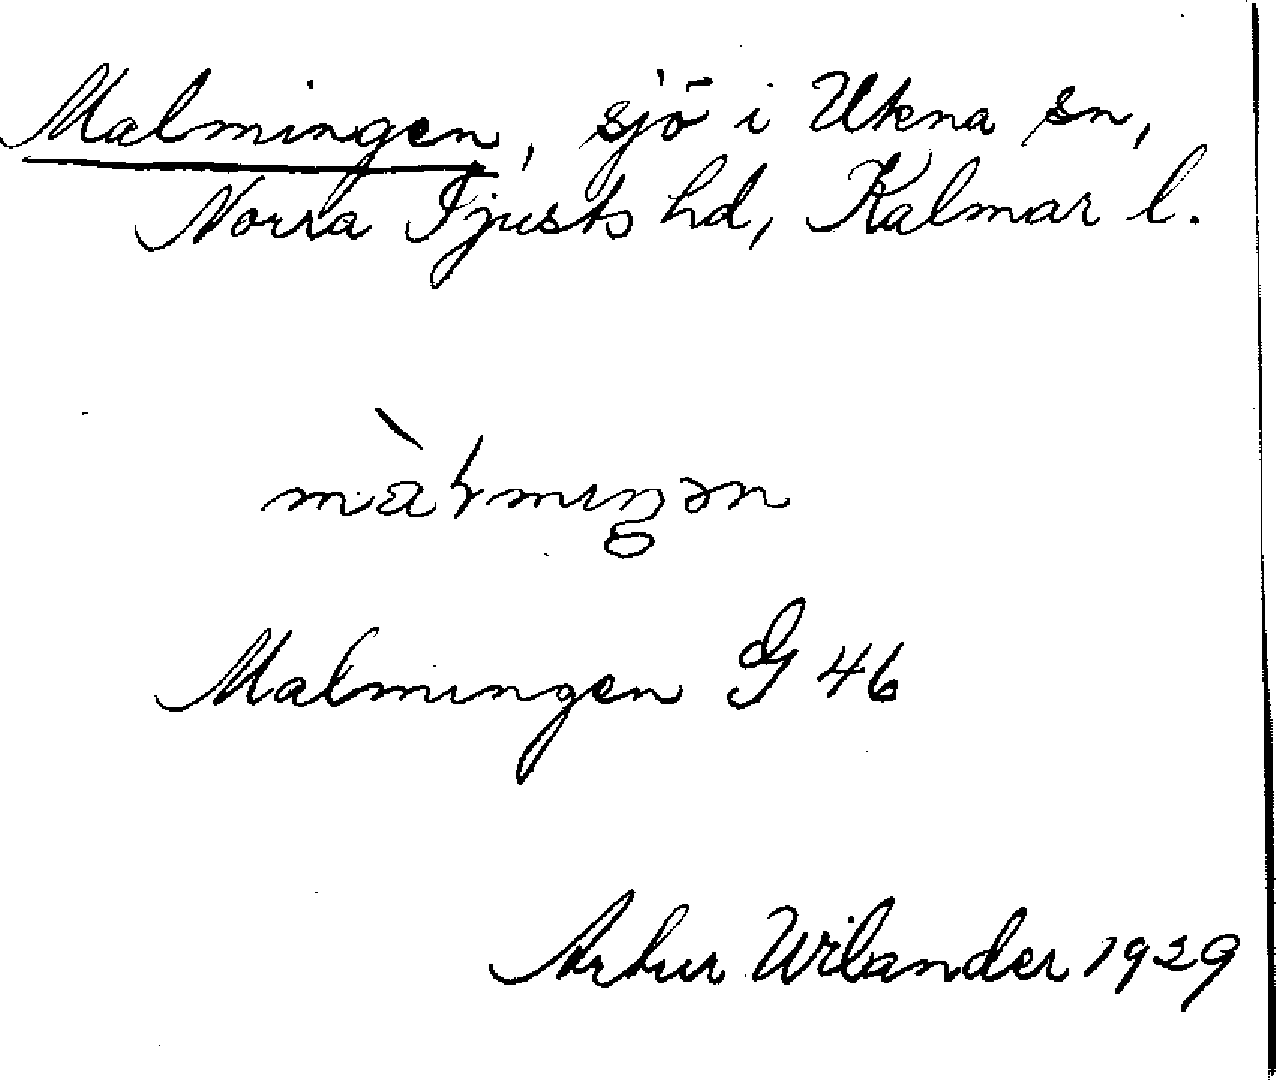 Malmingen, sjö i Ukna sn,
Norra Tjusts hd, Kalmar l.
Malmingen G 46
Artur Wilander 1929